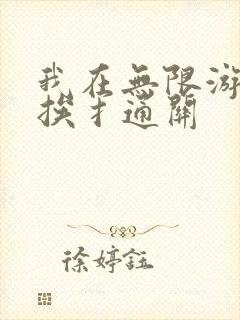 我在無限游
挨扌通關
徐婷鈺